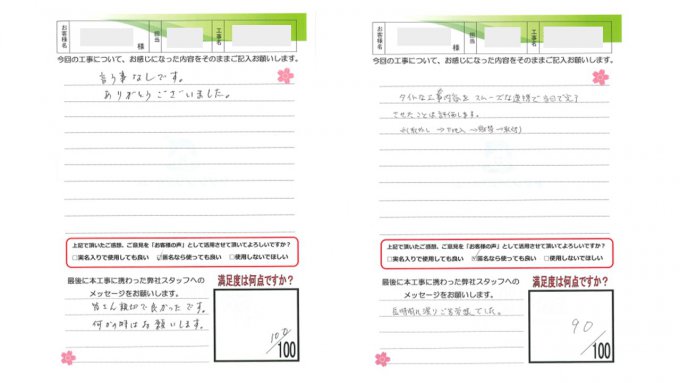 お客様名
様
担当
工事名
今回の工事について、お感じになった内容をそのままご記入お願いします。
言う事なしです。
ありがとうございました。
上記で頂いたご感想、ご意見を「お客様の声」として活用させて頂いてよろしいですか？
□実名入りで使用しても良い ☑匿名なら使っても良い □使用しないでほしい
最後に本工事に携わった弊社スタッフへの
メッセージをお願いします。
皆さん親切で良かったです。
何かの時はお願いします。
満足度は何点ですか？
100/100
お客様名
様
担当
工事名
今回の工事について、お感じになった内容をそのままご記入お願いします。
タイトな工事内容をスムーズな連携で当日で完了
させたことは評価します。
上記で頂いたご感想、ご意見を「お客様の声」として活用させて頂いてよろしいですか？
□実名入りで使用しても良い ☑匿名なら使っても良い □使用しないでほしい
最後に本工事に携わった弊社スタッフへの
メッセージをお願いします。
長時間に渡りご苦労様でした。
満足度は何点ですか？
90/100